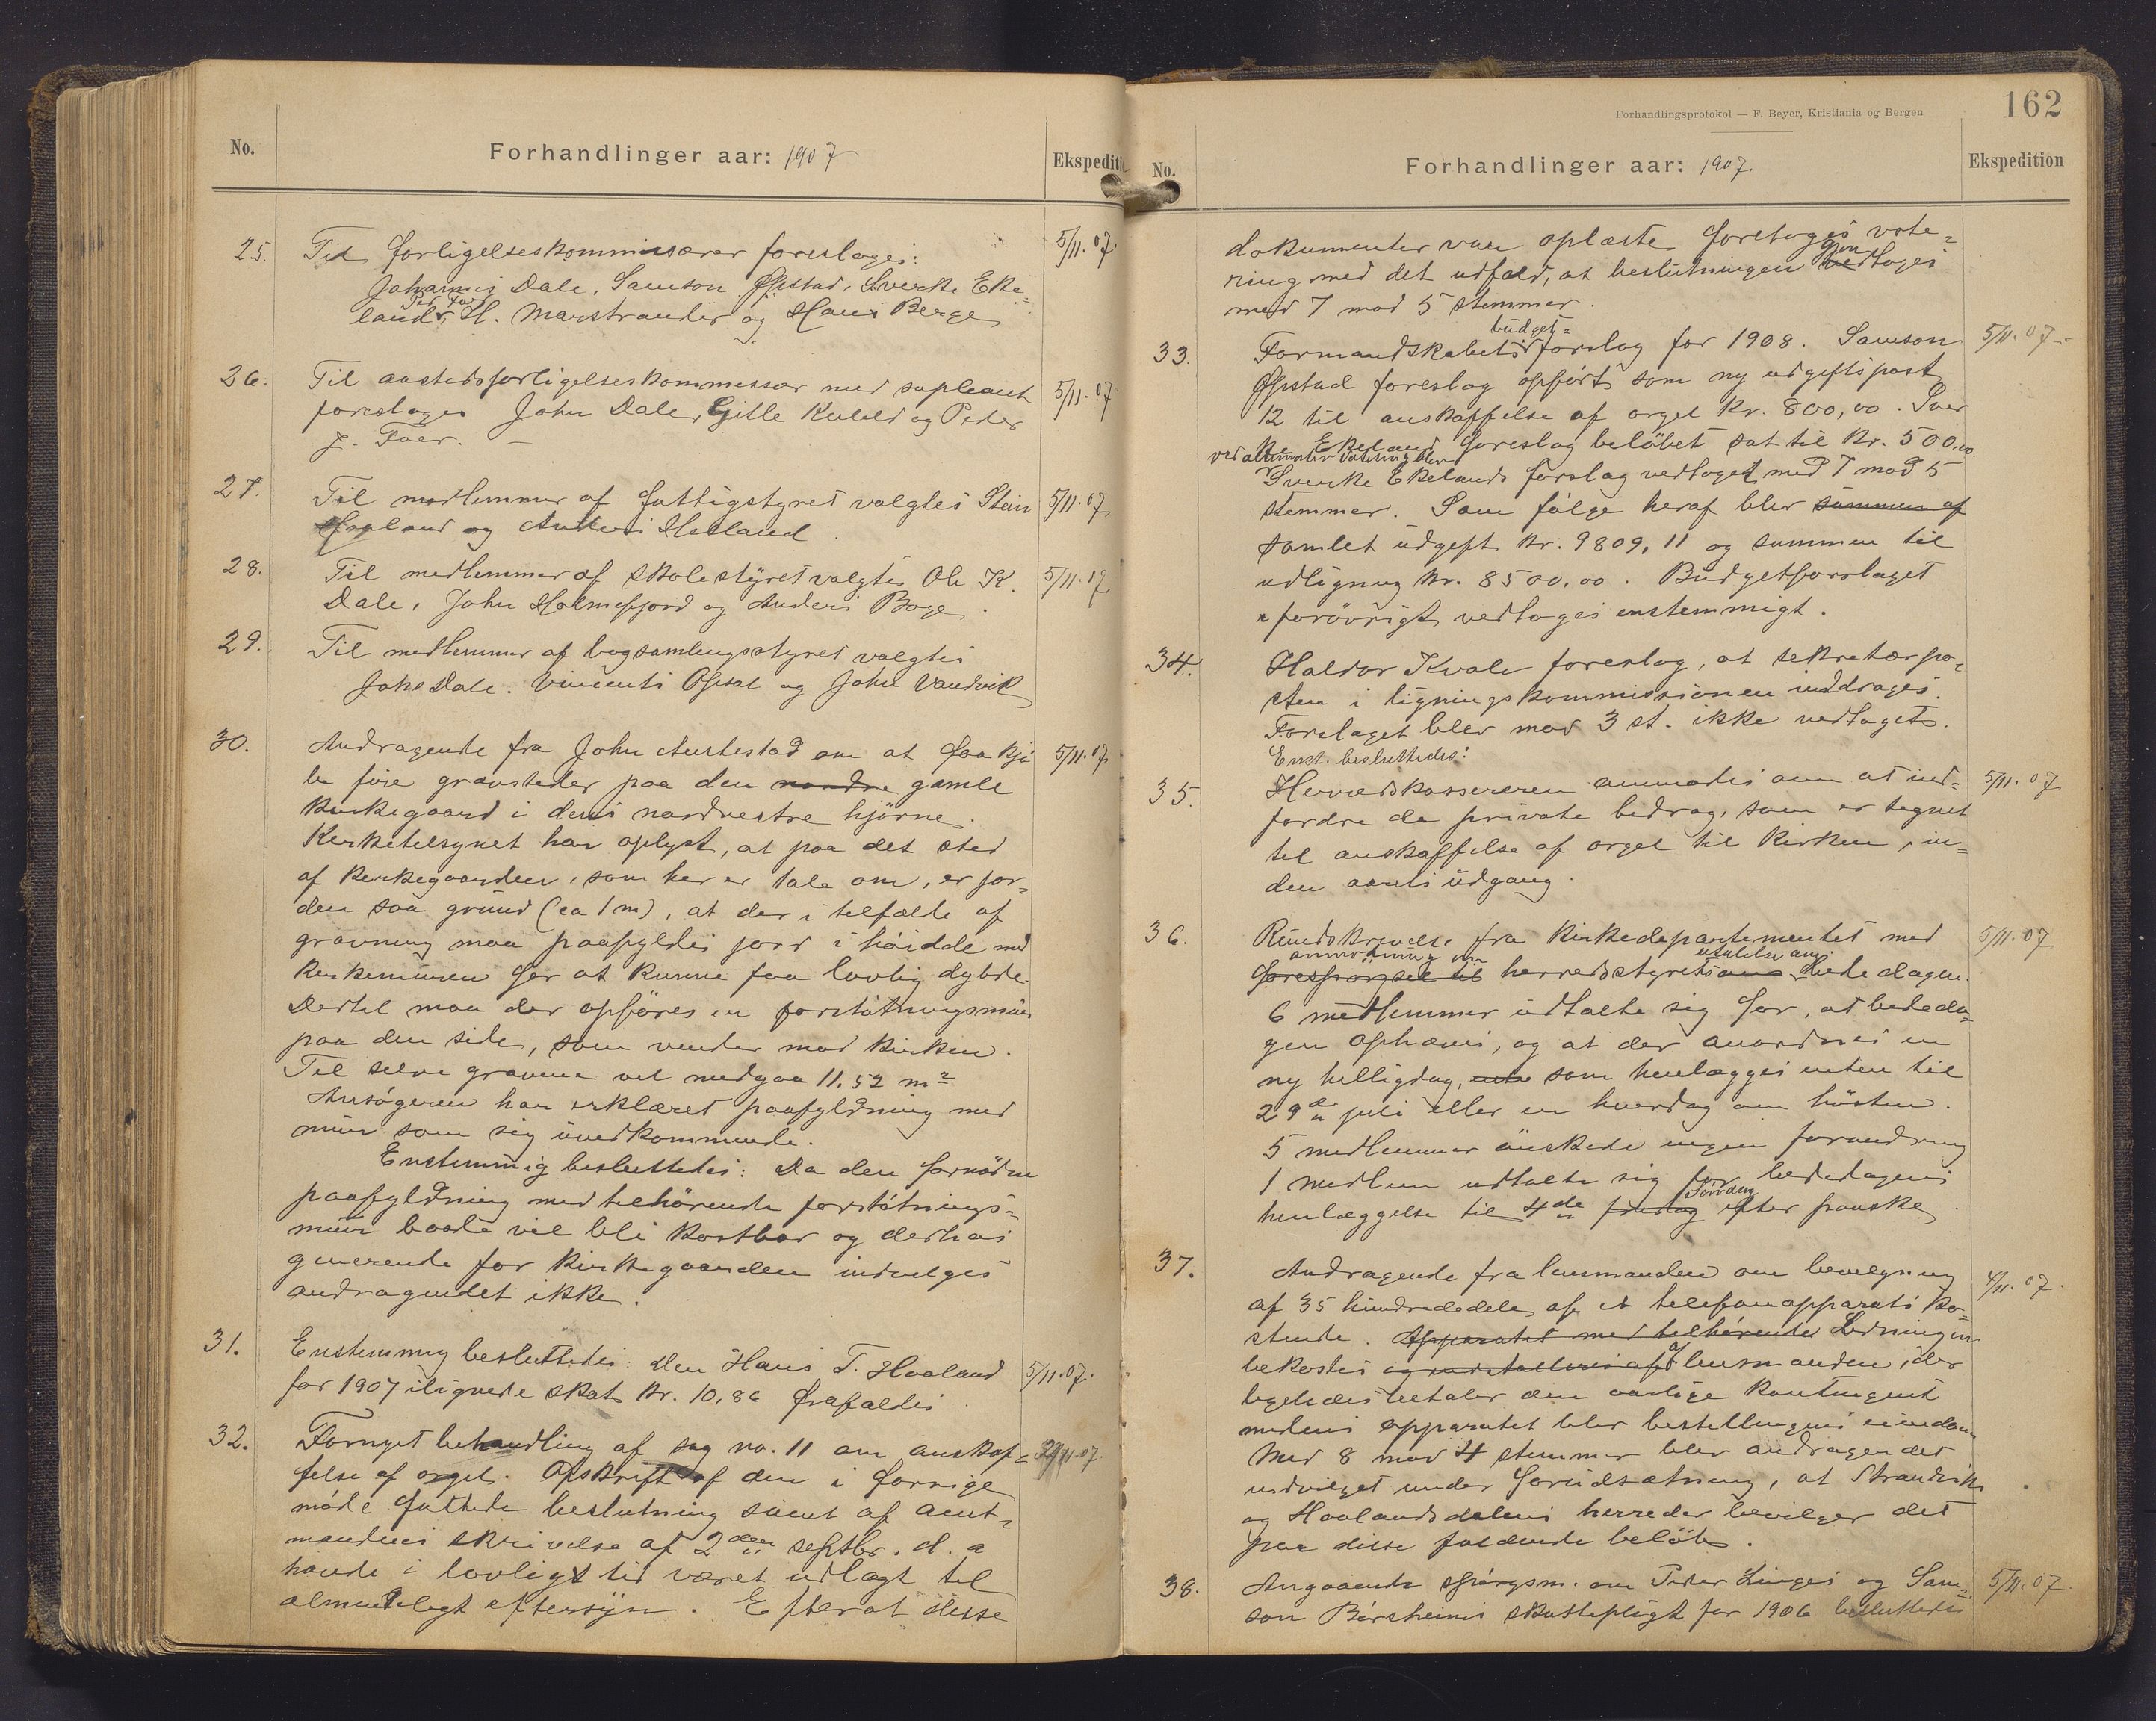 No.
Forhandlinger aar: 1907
Ekspediti
25. Til forligelseskommisærer foresloges: 5/11.07.
Johannis Dale, Samson Opstad, Sverke Eke-
land, H. Marstrander og Hans Berge
26. Til aastedsforligelseskommissær med supleant 5/11.07
foresloges John Dale, Gitle Kvåld og Peder
J. Tver. —
27. Til medlemmer af fattigstyret valgtes Stein 5/11.07
Hopland og Anders Helland.
28. Til medlemmer af skolestyret valgtes Ole K. 5/11.07
Dale, John Holmefjord og Anders Boge.
29. Til medlemmer af bogsamlingsstyret valgtes
Johs Dale. Vincents Opsal og John Vandvik
30. Andragende fra John Aurlestad om at faa kjö 5/11.07
be fire gravsteder paa den nordre gamle
Kirkegaard i dens nordvestre hjörne.
Kirketilsynet har oplyst, at paa det sted
af kirkegaarden, som her er tale om, er jor-
den saa grund (ca 1 m), at der i tilfælde af
gravning maa paafyldes jord i höidde med
kirkemuren for at kunne faa lovlig dybde.
Dertil maa der opföres en forstötningsmur
paa den side, som vender mod kirken.
Til selve gravene vil medgaa 11.52 m²
Ansögeren har erklæret paafyldning med
mur som sig uvedkommende.
Enstemmig besluttedes: Da den fornödne
paafyldning med tilhörende forstötnings-
mur baade vil bli kostbar og derhos
generende for kirkegaarden indvilges
andragendet ikke.
31. Enstemmig besluttedes: Den Hans T. Haaland 5/11.07.
for 1907 ilignede skat kr. 10,86 frafaldes.
32. Fornyet behandling af sag no. 11 om anskaf- 29/11.07.
felse af orgel. Afskrift af den i forrige
möde fattede beslutning samt af amt-
mandens skrivelse af 2den septbr. d. a
havde i lovlig tid været udlagt til
almindeligt eftersyn. Efterat disse
Forhandlingsprotokol — F. Beyer, Kristiania og Bergen
162
No.
Forhandlinger aar: 1907.
Ekspedition
dokumenter var oplæste foretoges vote-
ring med det udfald, at beslutningen gjentoges
med 7 mod 5 stemmer.
33. Formandskabets budget- forslag for 1908. Samson 5/11.07.
Opstad foreslog opfört som ny udgiftspost
12 til anskaffelse af orgel kr. 800,00. Sver
ke Ekeland foreslog belöbet sat til kr. 500,00.
ved alternativ votering blev
Sverke Ekelands forslag vedtaget med 7 mod 5
stemmer. Som fölge heraf blev summen af
samlet udgift kr. 9809,11 og summen til
udligning kr. 8500,00. Budgetforslaget
forövrigt vedtoges enstemmigt.
34. Haldor Kvale foreslog, at sekretærpo-
sten i ligningskommissionen inddrages.
Forslaget blev mod 3 st. ikke vedtaget.
Enst. besluttedes:
35. Herredskassereren anmodes om at ind- 5/11.07
fordre de private bidrag, som er tegnet
til anskaffelse af orgel til kirken, in-
den aarets udgang.
36. Rundskrivelse fra Kirkedepartementet med 5/11.07
anmodning om udtalelse ang.
forespörgsel til herredsstyrets ans bededagen.
6 medlemmer udtalte sig for, at bededa-
gen ophæves, og at der anordnes en
ny helligdag, som henlægges enten til
29de juli eller en hverdag om hösten.
5 medlemmer önskede ingen forandring
1 medlem udtalte sig for bededagens
henlæggelse til 4de fredag Söndag efter paaske.
37. Andragende fra lensmanden om bevilgning 4/11.07.
af 35 hundrededele af et telefonapparats ko-
stende. Apparatet med tilhörende Ledningen
bekostes og installeres af af lensmanden, der
ligeledes betaler den aarlige kontingent
medens apparatet blev bestillingens eiendom
Med 8 mod 4 stemmer blev andragendet
indvilget under forudsætning, at Strandviks
og Haalandsdalens herreder bevilger det
paa disse faldende belöb.
38. Angaaende spörgsm. om Peder Linges og Sam- 5/11.07.
son Börsheims skattepligt for 1906 besluttedes